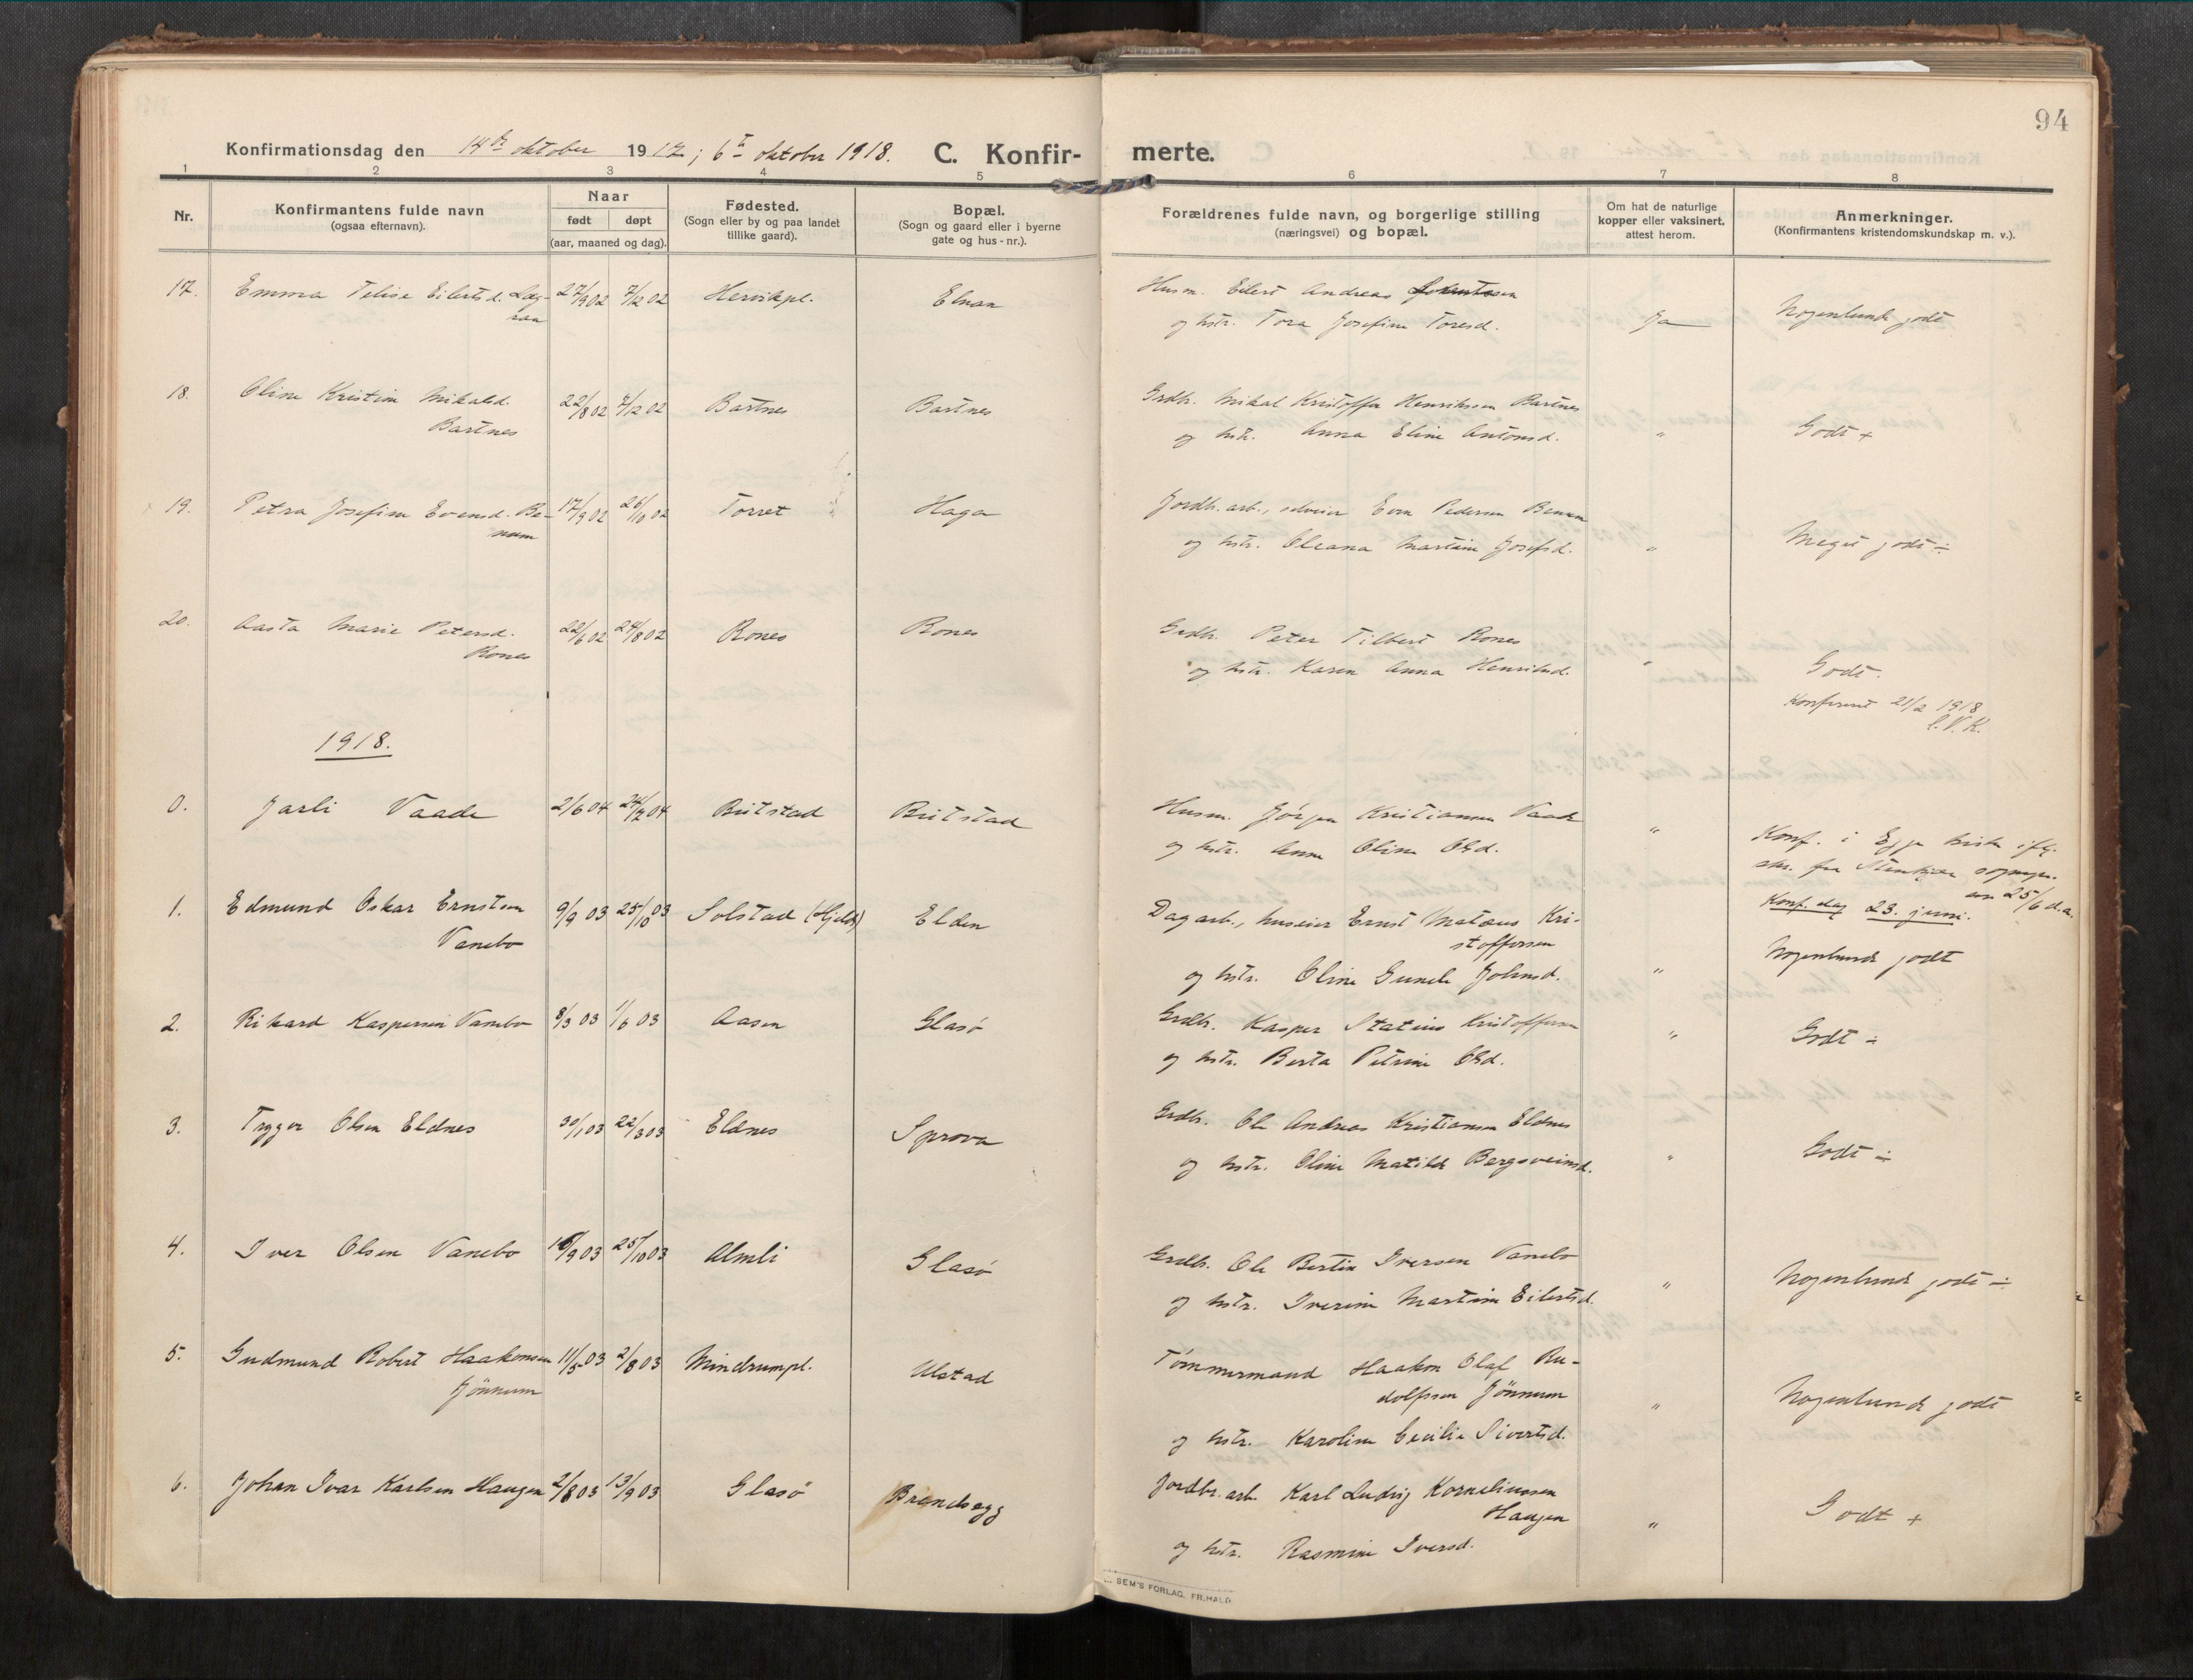 94
Konfirmationsdag den 14de oktober 1917; 6te oktober 1918. C. Konfir- merte.
1 2 3 4 5 6 7 8
Nr.
Konfirmantens fulde navn
(ogsaa efternavn).
Naar
født døpt
(aar, maaned og dag).
Fødested.
(Sogn eller by og paa landet
tillike gaard).
Bopæl.
(Sogn og gaard eller i byerne
gate og hus-nr.).
Forældrenes fulde navn, og borgerlige stilling
(næringsvei) og bopæl.
Om hat de naturlige
kopper eller vaksinert,
attest herom.
Anmerkninger.
(Konfirmantens kristendomskundskap m. v.).
17. Emma Telise Eilertsd. Læg- 27/9 02 7/12 02 Hervikpl. Elnan Husm. Eilert Andreas
raa
og hstr. Tora Josefine Toresd. Ja Nogenlunde godt
18. Oline Kristine Mikalsd. 22/8 02 7/12 02 Bartnes Bartnes Grdbr. Mikal Kristoffer Henriksen Bartnes
Bartnes
og hstr. Anna Eline Antonsd. " Godt +
19. Petra Josefine Evensd. Be- 17/9 02 26/10 02 Torret Haga Jordbr.arb., selveier Even Pedersen Benum
num
og hstr. Oleana Martine Josefsd. " Meget godt ÷
20. Aasta Marie Petersd. 22/6 02 24/8 02 Rones Rones Grdbr. Peter Tilbert Rones
Rones
og hstr. Karen Anna Henriksd. " Godt.
Konferert 21/2 1918
C.V.K.
1918.
0. Jarli Vaade 2/6 04 24/7 04 Britstad Britstad Husm. Jørgen Kristiansen Vaade
og hstr. Anna Oline Olsd. " Konf. i Egge kirke iflg.
skr. fra Stenkjær sognepr.
av 25/6 d.a.
Konf.dag 23. juni.
1. Edmund Oskar Ernstsen 9/9 03 25/10 03 Solstad (Hjeldt) Elden Dagarb., huseier Ernst Matæus Kri-
Vanebo
stoffersen
og hstr. Oline Gunele Johnsd. " Nogenlunde godt
2. Rikard Kaspersen Vanebo 8/3 03 1/6 03 Aasen Glasø Grdbr. Kasper Statius Kristoffersen
og hstr. Berta Petrine Olsd. " Godt ÷
3. Trygve Olsen Eldnes 30/1 03 22/3 03 Eldnes Sprova Grdbr. Ole Andreas Kristiansen Eldnes
og hstr. Oline Matilde Bergsveinsd. " Godt ÷
4. Iver Olsen Vanebo 16/9 03 25/10 03 Almli Glasø Grdbr. Ole Bertin Iversen Vanebo
og hstr. Iverine Martine Eilertsd. " Nogenlunde godt ÷
5. Gudmund Robert Haakonsen 11/5 03 2/8 03 Mindrumpl. Ulstad Tømmermand Haakon Olaf Ru-
Jønnum
dolfssen Jønnum
og hstr. Karoline Cecilie Sivertsd. " Nogenlunde godt
6. Johan Ivar Karlsen Haugen 2/8 03 13/9 03 Glasø Brandsegg Jordbr.arb. Karl Ludvig Korneliussen
Haugen
og hstr. Rasmine Iversd. " Godt +
SEM'S FORLAG, FR.HALD.